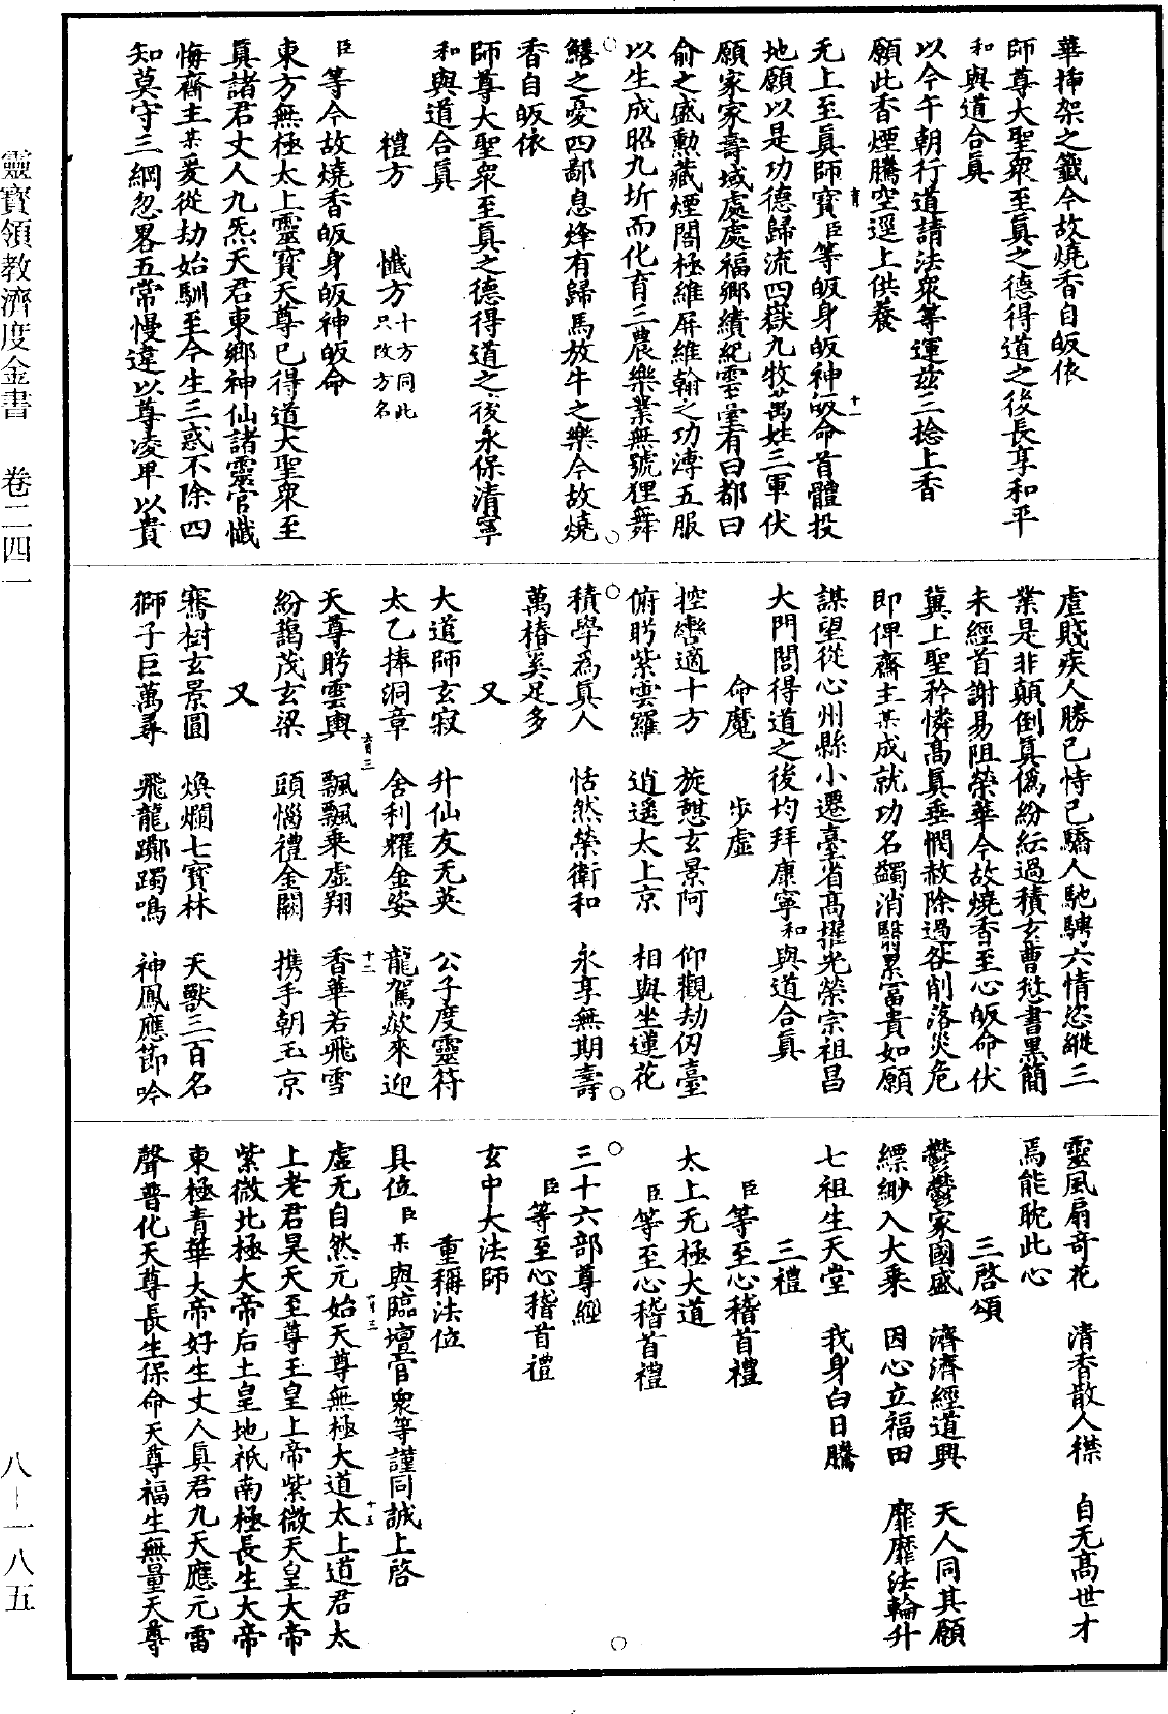 華揷架之籤今故燒香自皈依
師尊大聖衆至眞之德得道之後長享和平
和與道合眞
以今午朝行道請法衆等運茲三捻上香
願此香煙騰空逕上供養
无上至眞師寶臣等皈身皈神皈命首體投
地願以是功德歸流四嶽九牧萬姓三軍伏
願家家壽域處處福鄉續紀雲臺有曰都曰
俞之盛勳藏煙閣極維屏維翰之功溥五服
以生成昭九圻而化育三農樂業無號狸舞
鱔之憂四鄙息烽有歸馬放牛之樂今故燒
香自皈依
師尊大聖衆至眞之德得道之後永保清寧
和與道合眞
禮方　懺方十方同此只改方名
臣等今故燒香皈身皈神皈命
東方無極太上靈寶天尊已得道大聖衆至
眞諸君丈人九炁天君東鄉神仙諸靈官懺
悔齋主某爰從劫始馴至今生三惑不除四
知莫守三綱忽畧五常慢違以尊凌卑以貴
虐賤疾人勝己恃己驕人馳騁六情恣縱三
業是非顛倒眞僞紛紜過積玄曹愆書黑簡
未經首謝易阻榮華今故燒香至心皈命伏
冀上聖矜憐高眞垂憫赦除過咎削落災危
即俾齋主某成就功名蠲消翳累富貴如願
謀望從心州縣小遷臺省高擢光榮宗祖昌
大門閭得道之後均拜康寧和與道合眞
命魔　步虛
控轡適十方　旋憇玄景阿　仰觀劫仞臺
俯眄紫雲羅　逍遙太上京　相與坐蓮花
積學爲眞人　恬然榮衛和　永享無期壽
萬椿奚足多
又
大道師玄寂　升仙友无英　公子度靈符
太乙捧洞章　舍利耀金姿　龍駕欻來迎
天尊眄雲輿　飄飄乘虛翔　香華若飛雪
紛藹茂玄梁　頭惱禮金闕　携手朝玉京
又
騫樹玄景圓　煥爛七寶林　天獸三百名
獅子巨萬尋　飛龍躑躅鳴　神鳳應節吟
靈風扇奇花　清香散人襟　自无高世才
焉能耽此心
三啓頌
鬱鬱家國盛　濟濟經道興　天人同其願
縹緲入大乘　因心立福田　靡靡法輪升
七祖生天堂　我身白日騰
三禮
臣等至心稽首禮
太上无極大道
臣等至心稽首禮
三十六部尊經
臣等至心稽首禮
玄中大法師
重稱法位
具位臣某與臨壇官衆等謹同誠上啓
虛无自然元始天尊無極大道太上道君太
上老君昊天至尊玉皇上帝紫微天皇大帝
紫微北極大帝后土皇地祇南極長生大帝
東極青華大帝好生丈人眞君九天應元雷
聲普化天尊長生保命天尊福生無量天尊
靈寶領教濟度金書　卷二四一
八—一八五